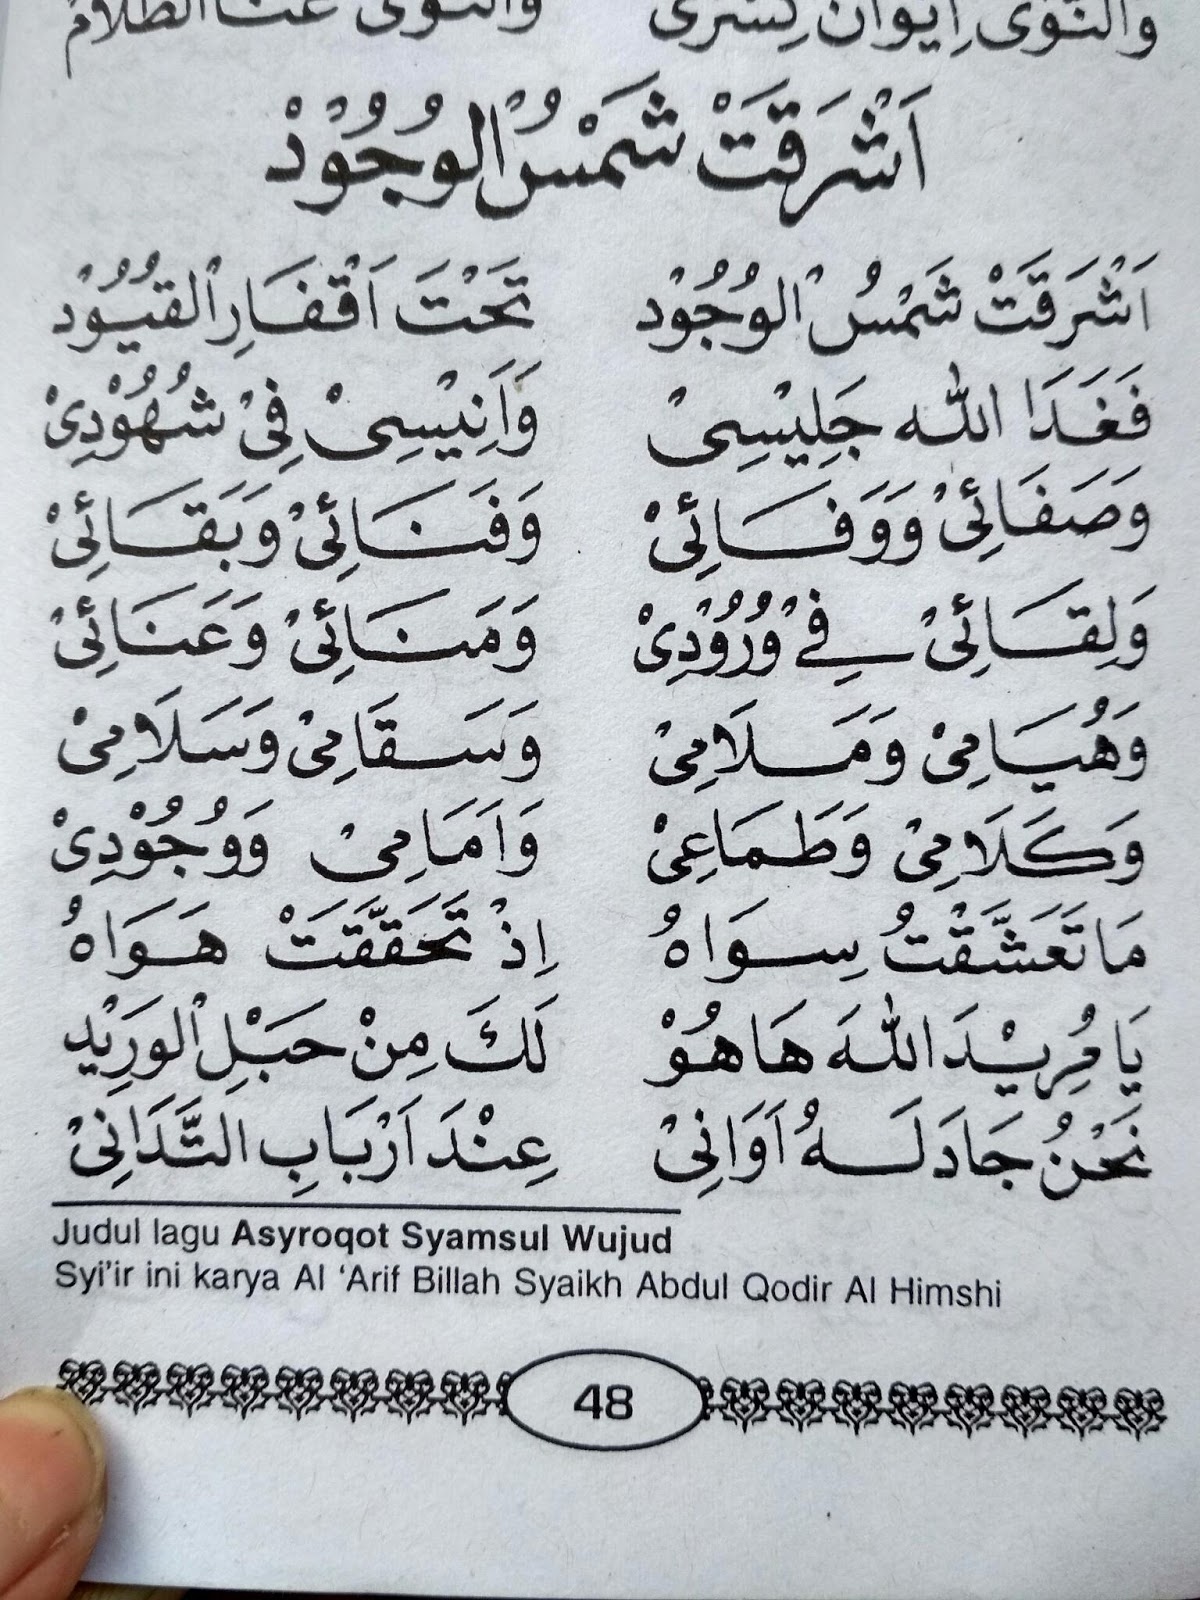 وَالْتَوٰى اِيْوَانُ كِسْرٰى وَالْتَوٰى عَنَّا الظَّلَامُ
اَشْرَقَتْ شَمْسُ الْوُجُوْدْ
اَشْرَقَتْ شَمْسُ الْوُجُوْد تَحْتَ اَقْفَارِ الْقُيُوْد
فَغَدَا اللّٰه جَلِيْسِيْ وَاَنِيْسِيْ فِيْ شُهُوْدِيْ
وَصَفَائِيْ وَوَفَائِيْ وَفَنَائِيْ وَبَقَائِيْ
وَلِقَائِيْ فِيْ وُرُوْدِيْ وَمَنَائِيْ وَعَنَائِيْ
وَهُيَامِيْ وَمَلَامِيْ وَسَقَامِيْ وَسَلَامِيْ
وَكَلَامِيْ وَطَمَاعِيْ وَاَمَامِيْ وَوُجُوْدِيْ
مَا تَعَشَّقْتُ سِوَاهُ اِذْ تَحَقَّقَتْ هَوَاهُ
يَا مُرِيْدَ اللّٰهَ هَا هُوْ لَكَ مِنْ حَبْلِ الْوَرِيْدِ
نَحْنُ جَادَلَهُ اَوَانِيْ عِنْدَ اَرْبَابِ التَّدَانِيْ
Judul lagu Asyroqot Syamsul Wujud
Syi'ir ini karya Al 'Arif Billah Syaikh Abdul Qodir Al Himshi
48